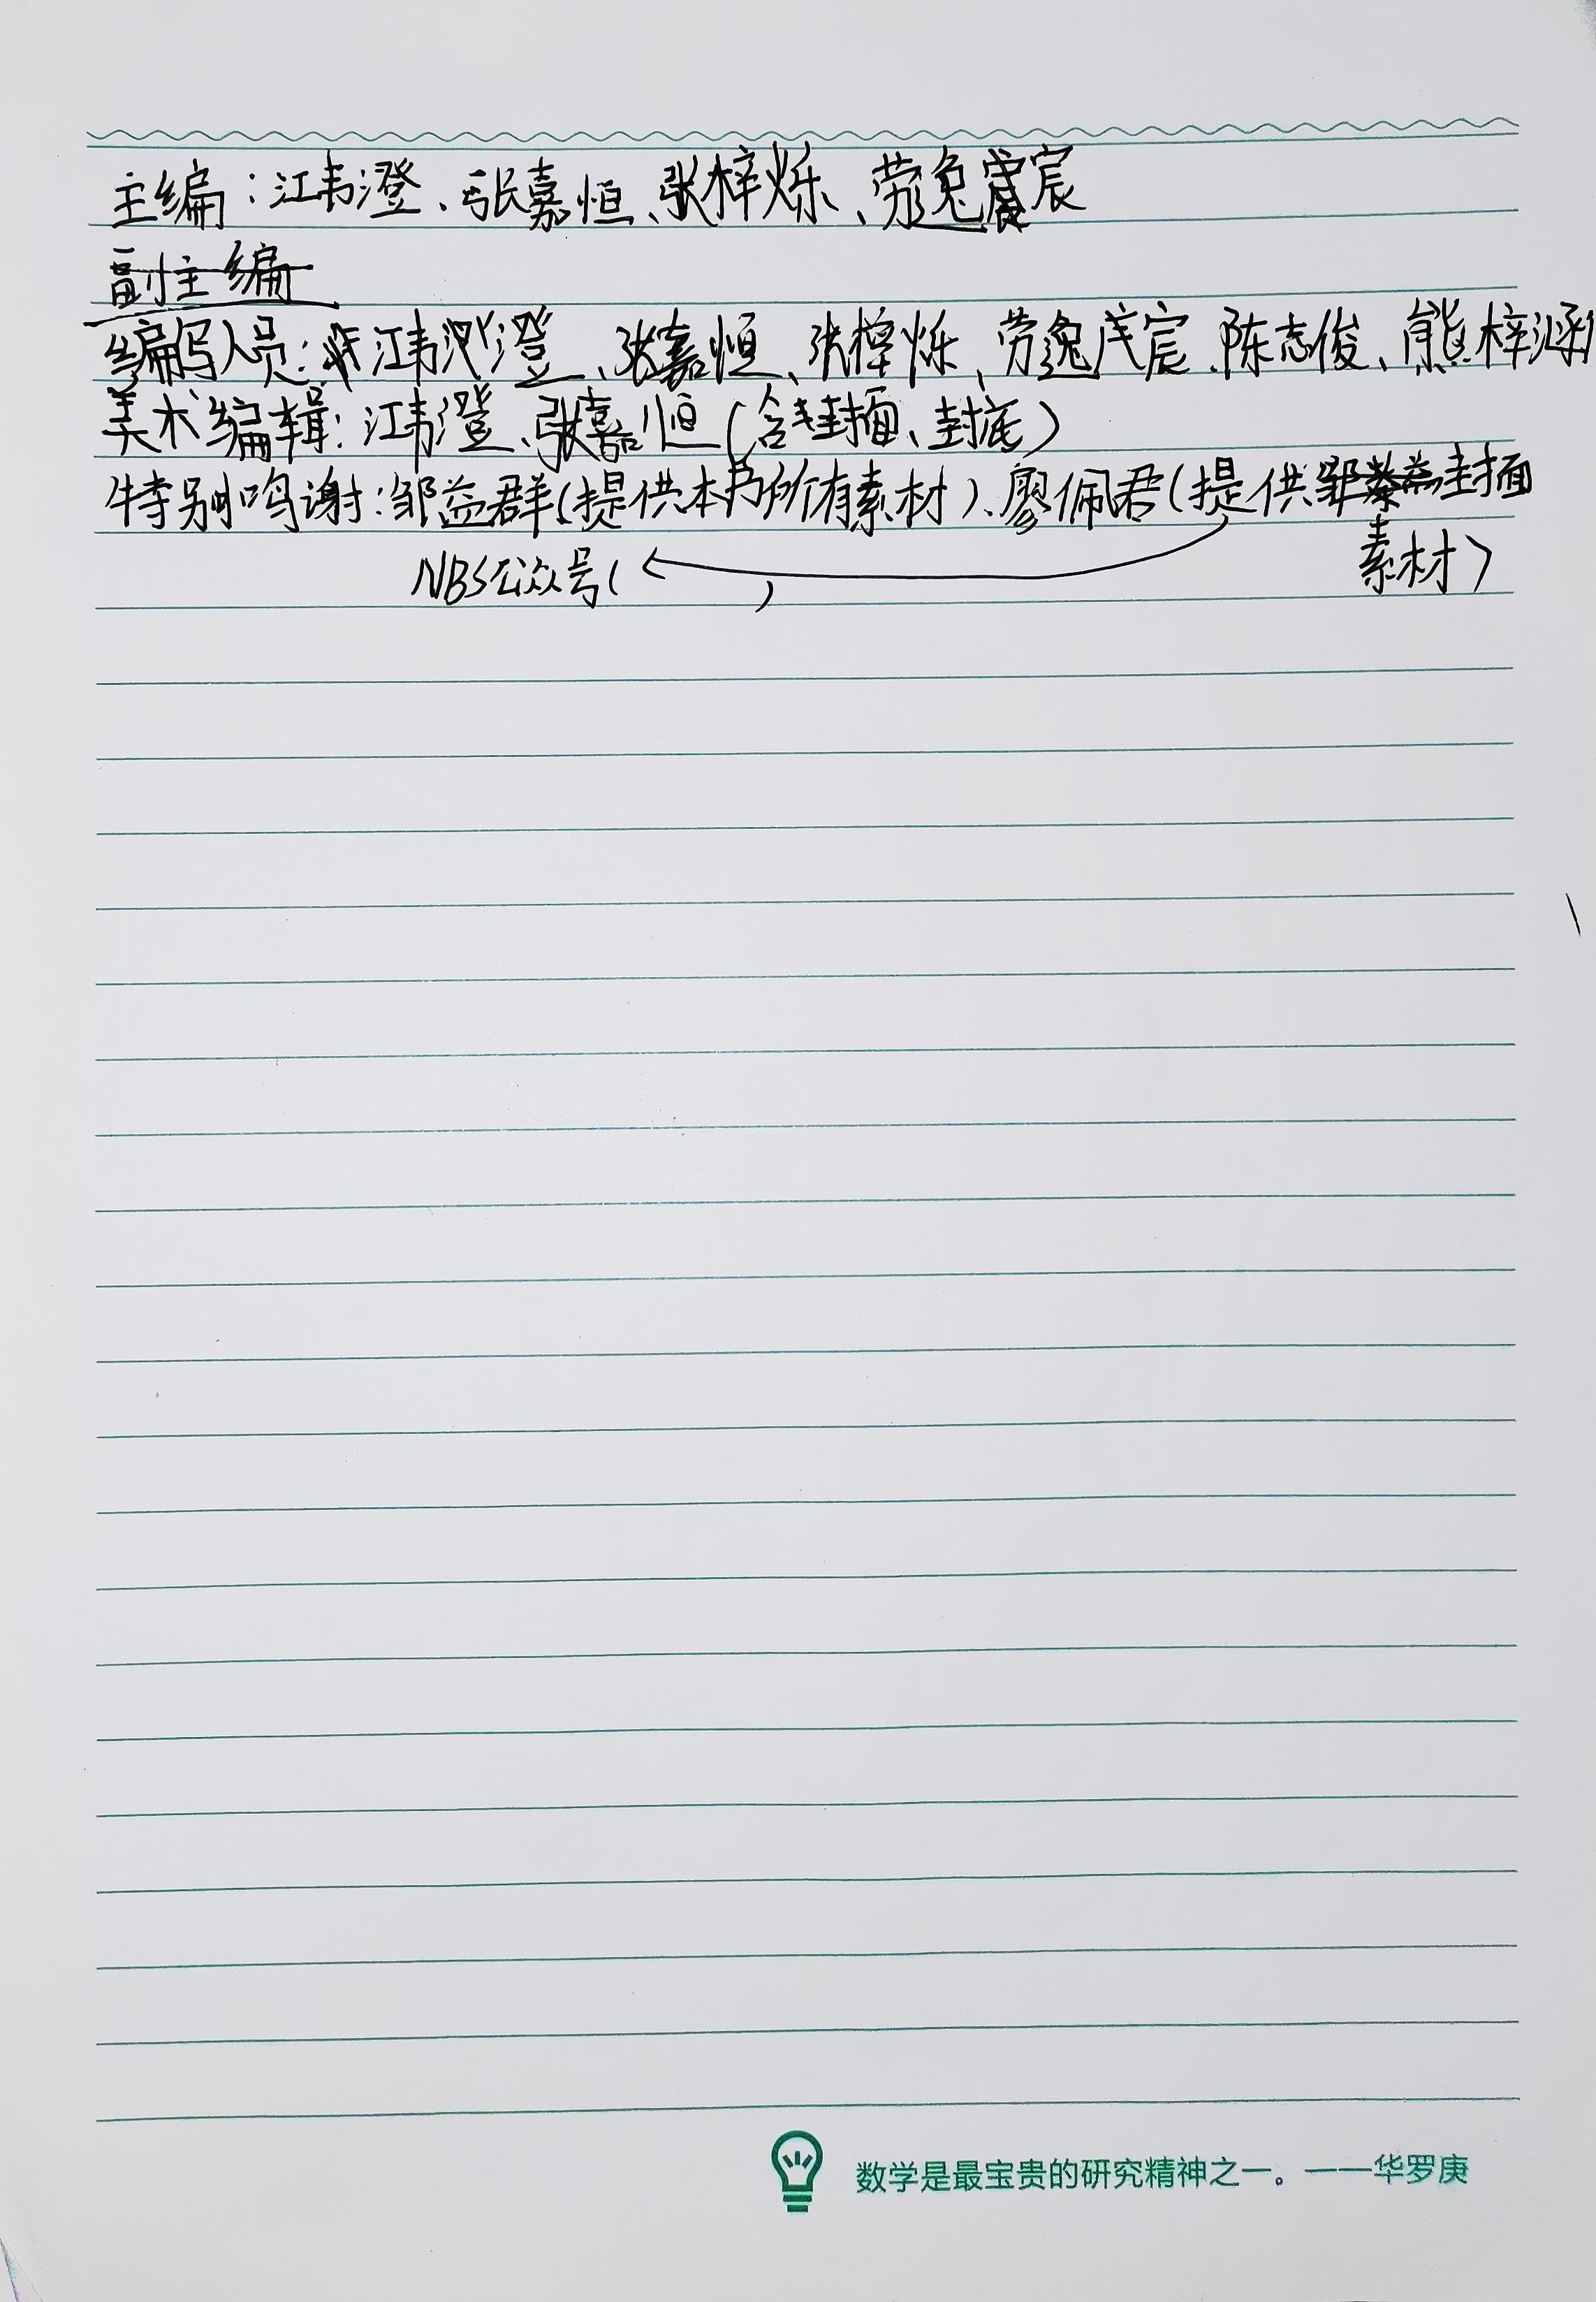 主编：江韦澄、张嘉恒、张梓烁、劳逸宬宸
副主编
编写人员：江韦澄、张嘉恒、张梓烁、劳逸宬宸、陈志俊、熊梓涵
美术编辑：江韦澄、张嘉恒（含封面、封底）
特别鸣谢：邹益群（提供本书所有素材）、廖佩君（提供封面
素材）
NBS公众号（ ）
数学是最宝贵的研究精神之一。——华罗庚